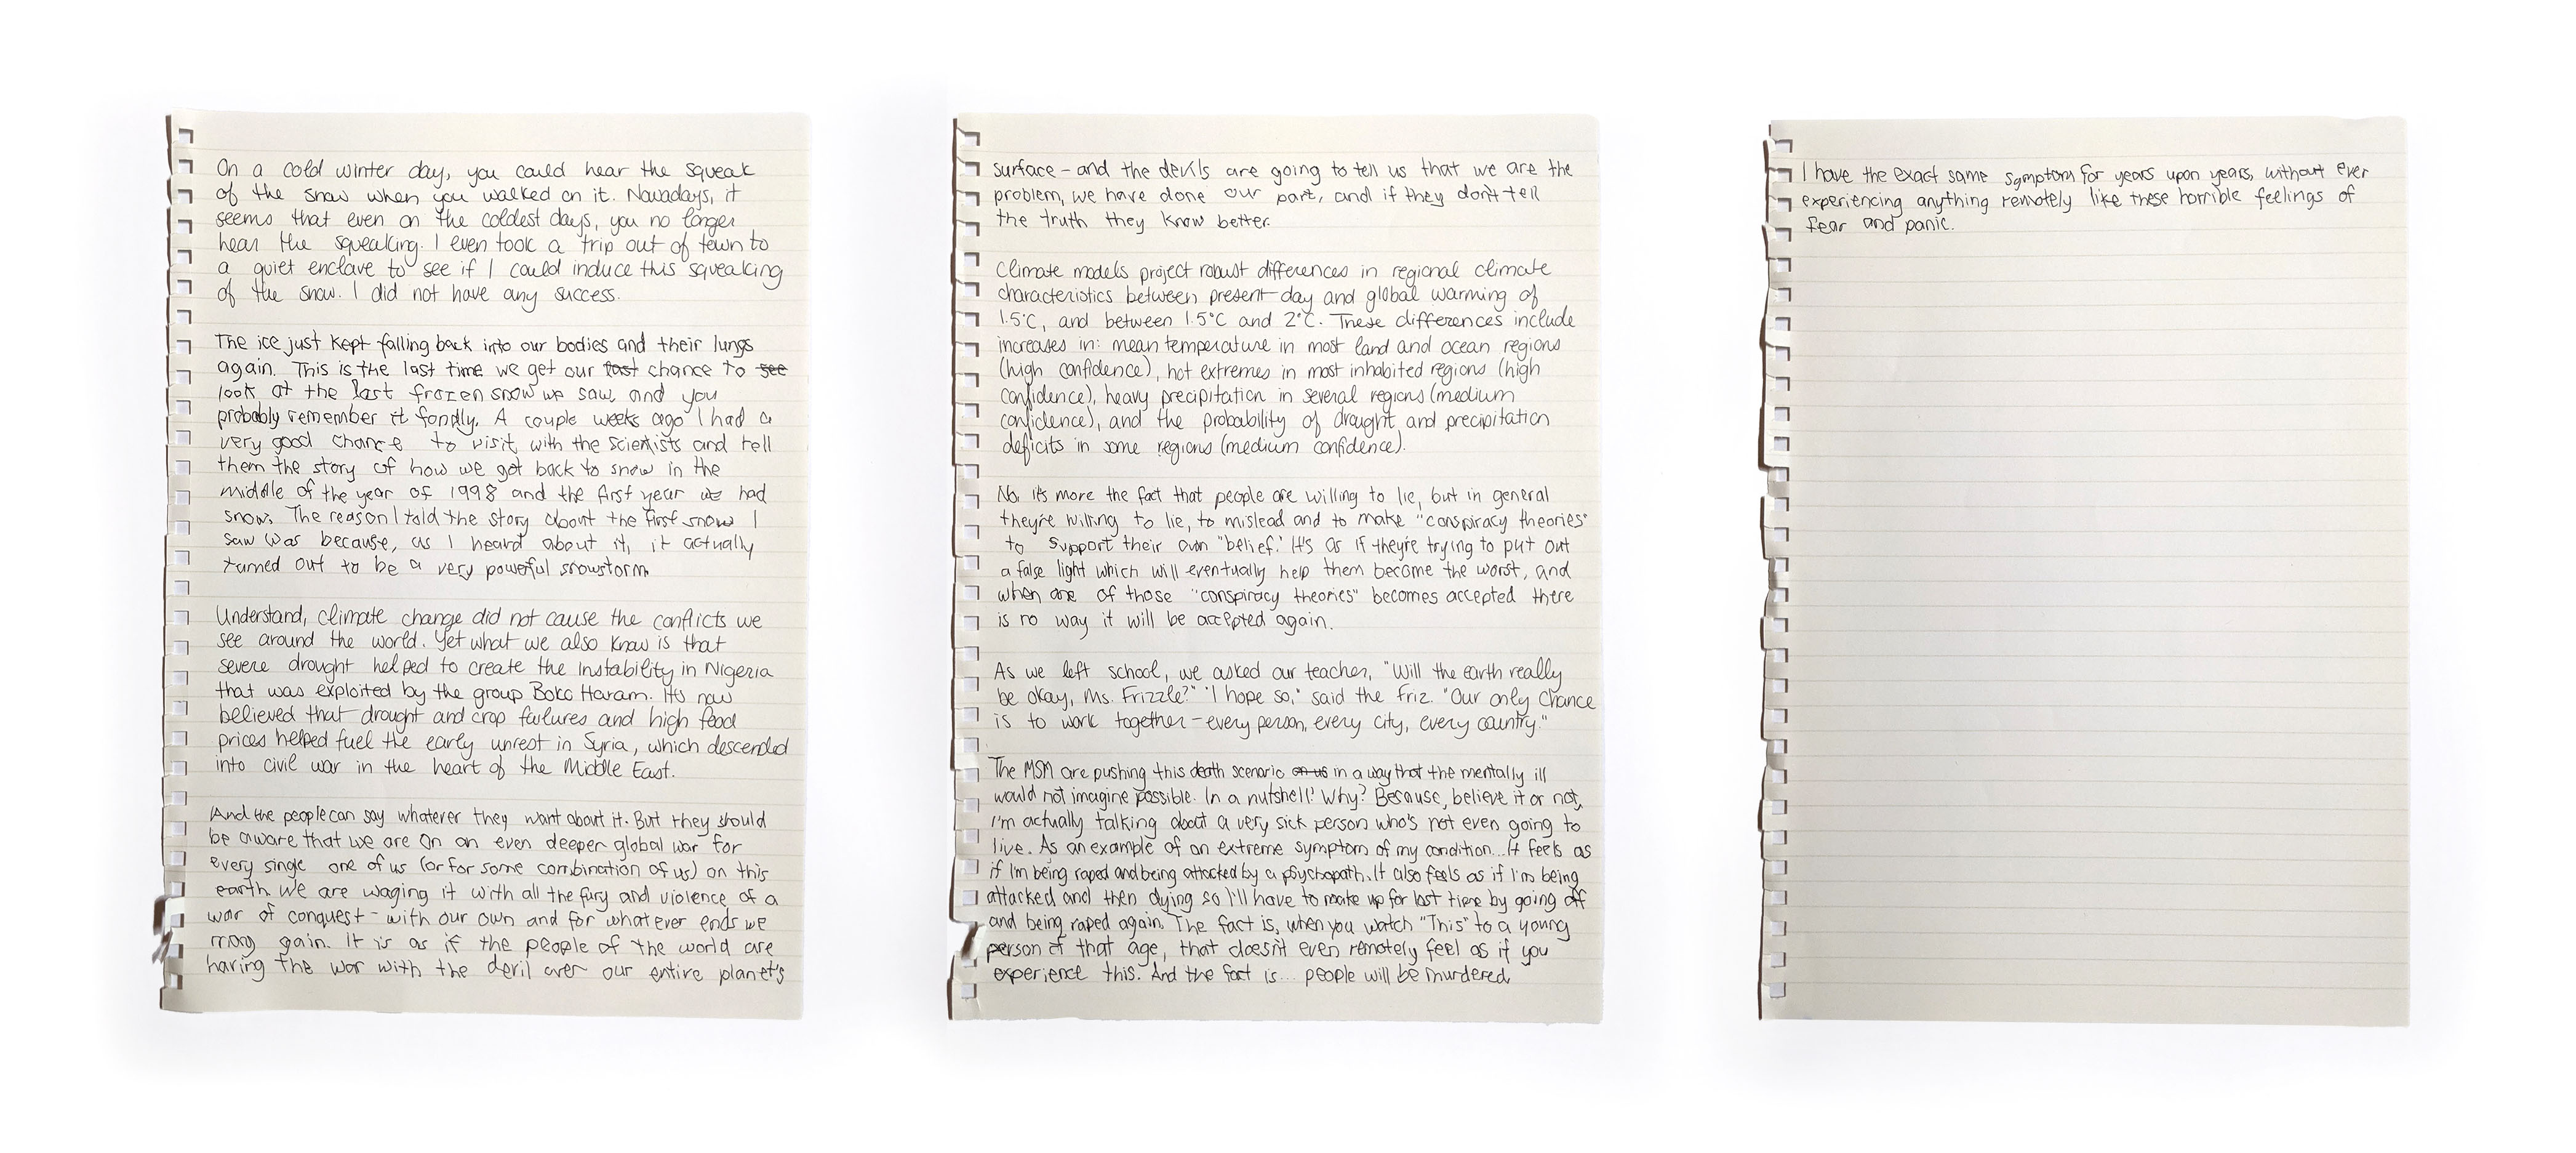 On a cold winter day, you could hear the squeak
of the snow when you walked on it. Nowadays, it
seems that even on the coldest days, you no longer
hear the squeaking. I even took a trip out of town to
a quiet enclave to see if I could induce this squeaking
of the snow. I did not have any success.
The ice just kept falling back into our bodies and their lungs
again. This is the last time we get our last chance to see
look at the last frozen snow we saw, and you
probably remember it fondly. A couple weeks ago I had a
very good chance to visit with the scientists and tell
them the story of how we got back to snow in the
middle of the year of 1998 and the first year we had
snow. The reason I told the story about the first snow I
saw was because, as I heard about it, it actually
turned out to be a very powerful snowstorm.
Understand, climate change did not cause the conflicts we
see around the world. Yet what we also know is that
severe drought helped to create the instability in Nigeria
that was exploited by the group Boko Haram. It's now
believed that drought and crop failures and high food
prices helped fuel the early unrest in Syria, which descended
into civil war in the heart of the Middle East.
And the people can say whatever they want about it. But they should
be aware that we are on an even deeper global war for
every single one of us (or for some combination of us) on this
earth. We are waging it with all the fury and violence of a
war of conquest - with our own and for whatever ends we
may gain. It is as if the people of the world are
having the war with the devil over our entire planet's
surface - and the devils are going to tell us that we are the
problem, we have done our part, and if they don't tell
the truth they know better.
Climate models project robust differences in regional climate
characteristics between present-day and global warming of
1.5°C, and between 1.5°C and 2°C. These differences include
increases in: mean temperature in most land and ocean regions
(high confidence), hot extremes in most inhabited regions (high
confidence), heavy precipitation in several regions (medium
confidence), and the probability of drought and precipitation
deficits in some regions (medium confidence).
No, it's more the fact that people are willing to lie, but in general
they're willing to lie, to mislead and to make "conspiracy theories"
to support their own "belief." It's as if they're trying to put out
a false light which will eventually help them become the worst, and
when one of those "conspiracy theories" becomes accepted there
is no way it will be accepted again.
As we left school, we asked our teacher, "Will the earth really
be okay, Ms. Frizzle?" "I hope so," said the Friz. "Our only chance
is to work together - every person, every city, every country."
The MSM are pushing this death scenario on us in a way that the mentally ill
would not imagine possible. In a nutshell! Why? Because, believe it or not,
I'm actually talking about a very sick person who's not even going to
live. As an example of an extreme symptom of my condition... It feels as
if I'm being raped and being attacked by a psychopath. It also feels as if I'm being
attacked and then dying so I'll have to make up for lost time by going off
and being raped again. The fact is, when you watch "This" to a young
person of that age, that doesn't even remotely feel as if you
experience this. And the fact is... people will be murdered.
I have the exact same symptom for years upon years, without ever
experiencing anything remotely like these horrible feelings of
fear and panic.